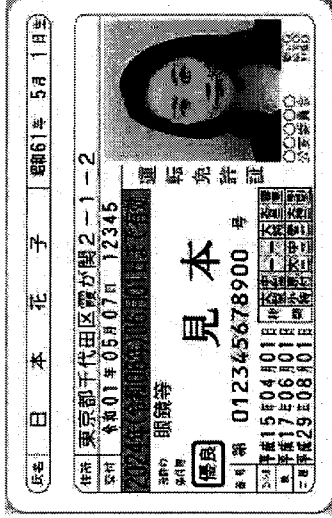 氏名 日本花子 昭和61年 5月 1日生
住所 東京都千代田区霞が関2-1-2
交付 令和01年05月07日 12345
2024年(令和06年)06月01日まで有効
免許の条件等
眼鏡等
見本
優良
番号 第 012345678900 号
平成15年04月01日
平成17年06月01日
二種 平成29年08月01日
種類
運転免許証
○○○○
公安委員会